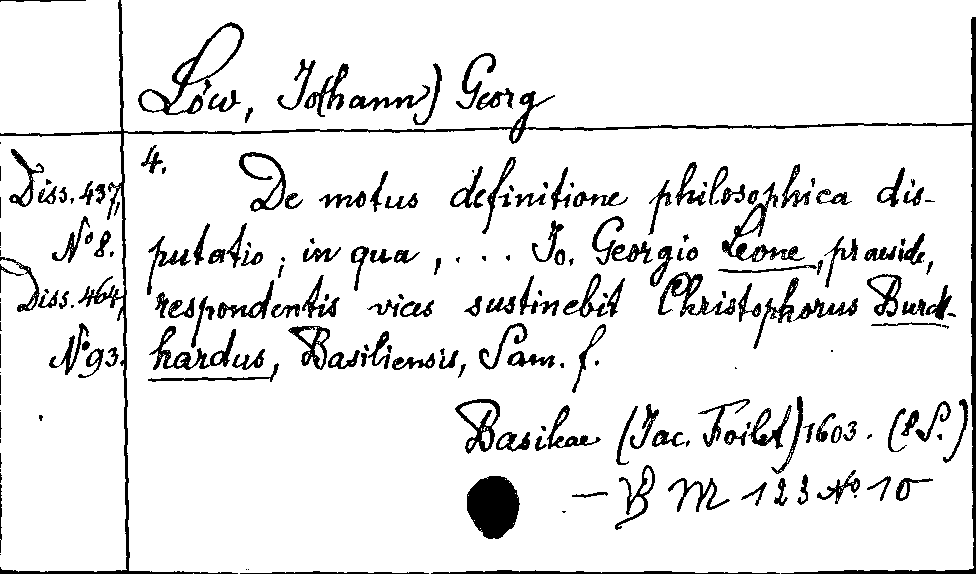 Löw, Jo(hann) Georg
4.
Diss. 437,
N° 8.
Diss. 464,
N° 93.
De motus definitione philosophica dis-
putatio, in qua, ... Jo. Georgio Leone, praeside,
respondentis vices sustinebit Christophorus Burck-
hardus, Basiliensis, Sam. f.
Basileae (Jac. Foillet) 1603. (8 S.)
— B M 123 N° 10